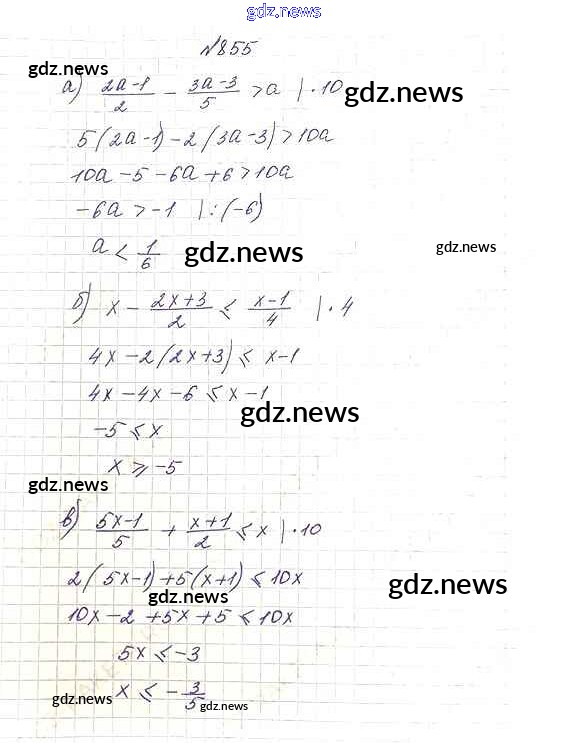 gdz.news
№855
gdz.news
а) (2a-1)/2 - (3a-3)/5 > a |·10
gdz.news
5(2a-1)-2(3a-3)>10a
10a-5-6a+6>10a
-6a>-1 |:(-6)
a < 1/6
gdz.news
gdz.news
б) x - (2x+3)/2 ≤ (x-1)/4 |·4
4x-2(2x+3)≤ x-1
4x-4x-6≤x-1
gdz.news
-5≤x
x≥-5
gdz.news
в) (5x-1)/5 + (x+1)/2 ≤ x |·10
2(5x-1)+5(x+1)≤10x
gdz.news
gdz.news
10x-2+5x+5≤10x
5x≤-3
x ≤ -3/5
gdz.news
gdz.news